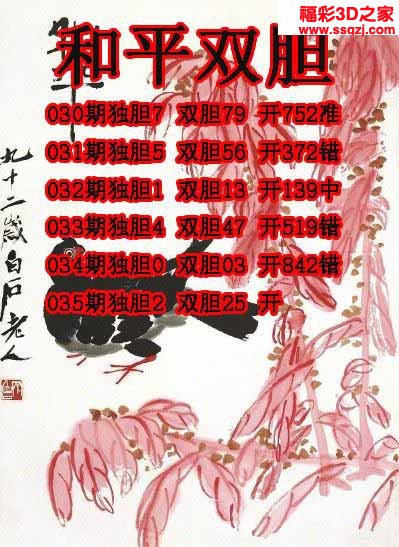 福彩3D之家
www.ssqzj.com
和平双胆
030期独胆7 双胆79 开752准
031期独胆5 双胆56 开372错
032期独胆1 双胆13 开139中
033期独胆4 双胆47 开519错
034期独胆0 双胆03 开842错
035期独胆2 双胆25 开
九十二岁白石老人